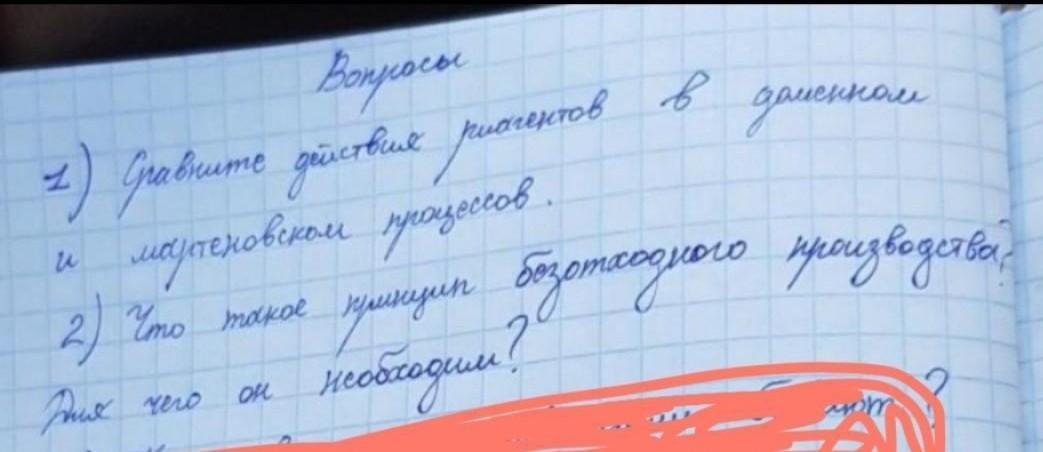 Вопросы
1) Сравните действия риагентов в доменном
и мартеновском процессов.
2) Что такое принцип безотходного производства?
Для чего он необходим?